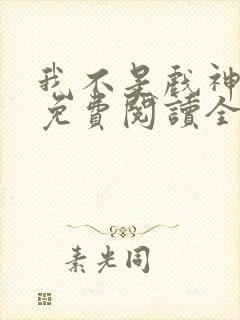 我不是戲神
免費閱讀全
素光同